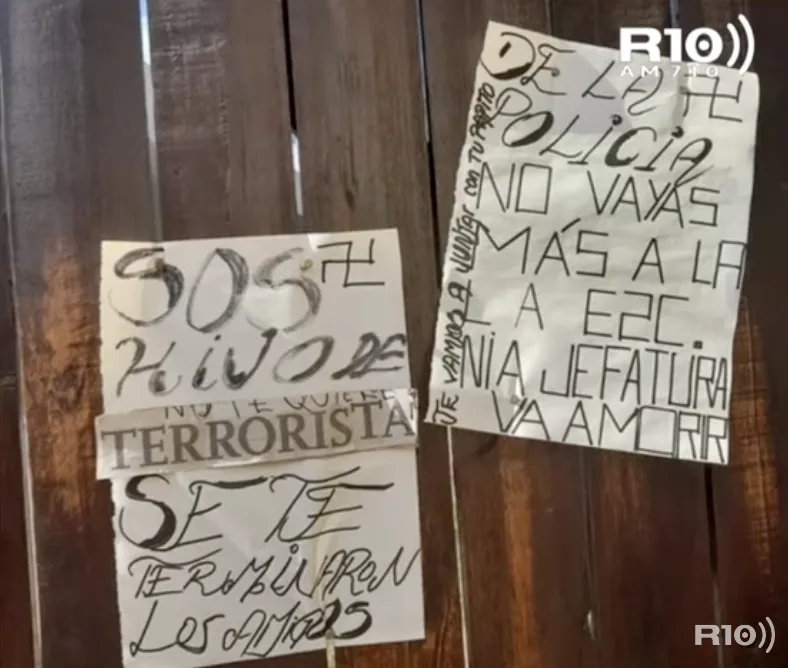 SOS 卐
HIJO DE
NO TE QUIERE
TERRORISTA
SE TE
TERMINARON
LOS AMIGOS
DE LA 卐
POLICIA
NO VAYAS
MÁS A LA
L A ESC.
NI A JEFATURA
VA A MORR
TE VAMOS A JUNTAR CON TU PAPITO
R10
AM 710
R10